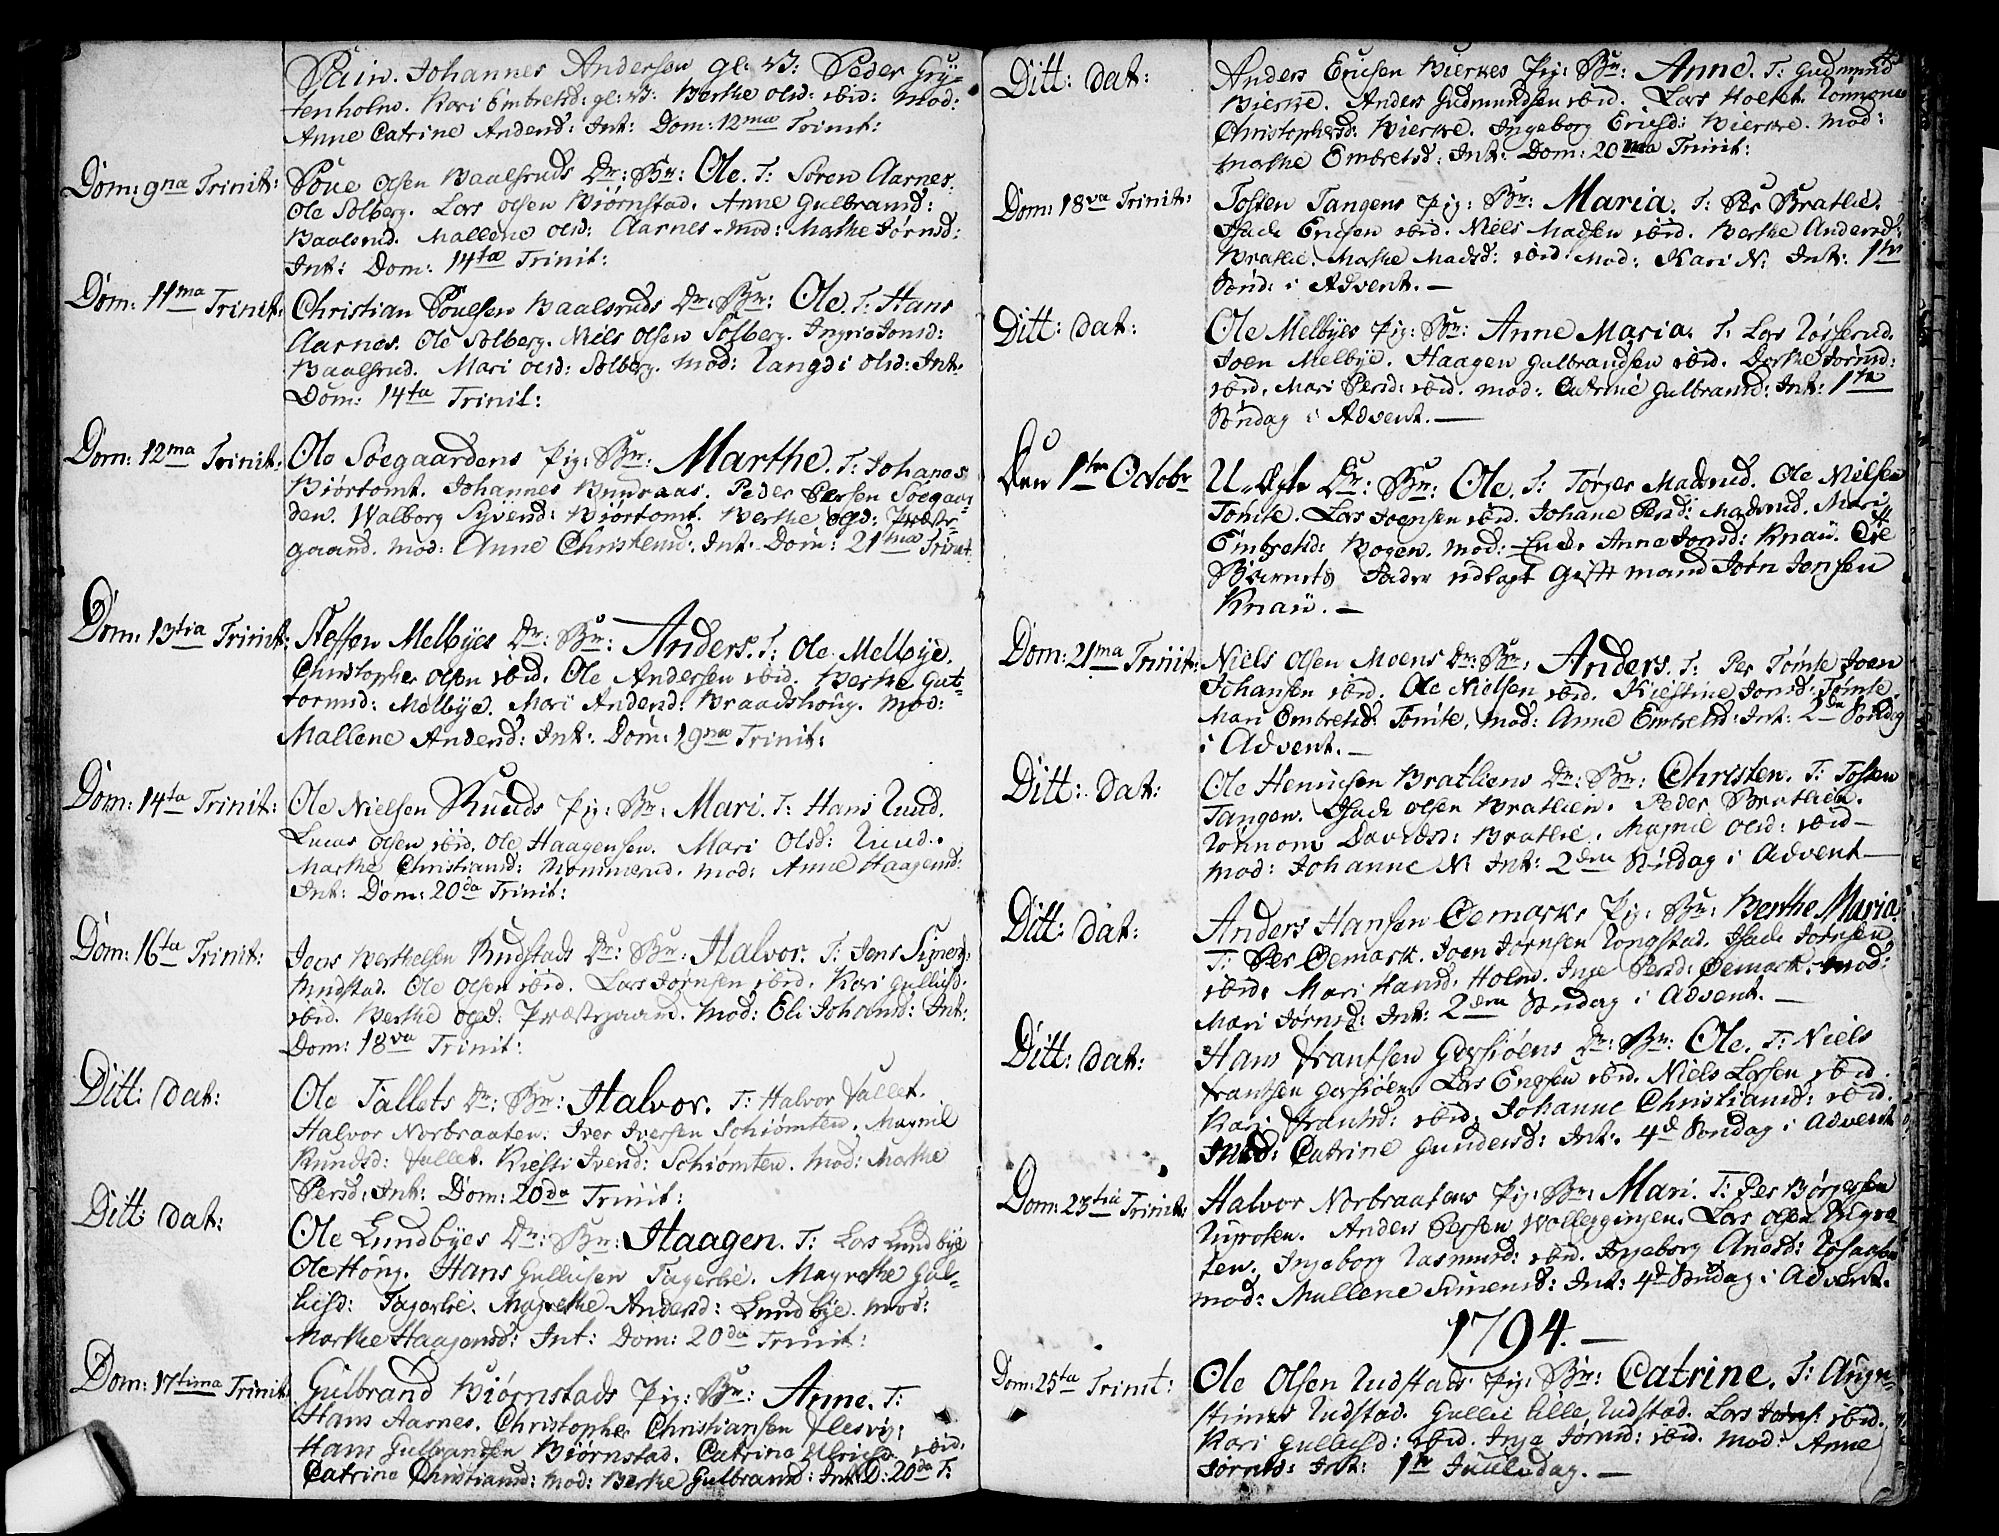 Pain. Johannes Andersøn gl: B: Peder Gry-
tenholm. Kari Embretsd: gl: B: Berthe Olsd: ibid: Mod:
Anne Catrine Andersd: Int: Dom: 12ma Trinit:
Dom: 9na Trinit: Poue Olsen Baalsruds Dr: Bn: Ole. T: Soren Aarnes.
Ole Solberg. Lars Olsen Biørnstad. Anne Gulbransd:
Baalsrud. Mallene Olsd: Aarnes. Mod: Marthe Jørnsd:
Int: Dom: 14ta Trinit:
Dom: 11ma Trinit: Christian Poulsen Baalsruds Dr: Bn: Ole. T: Hans
Aarnes. Ole Solberg. Niels Olsen Solberg. Ingrie Jonsd:
Baalsrud. Mari Olsd: Solberg. Mod: Rangdi Olsd: Int:
Dom: 14ta Trinit:
Dom: 12ma Trinit: Ole Søegaardens Pig: Bn: Marthe. T: Johanes
Biørtomt. Johannes Bundraas. Peder Persen Søegaar-
den. Walborg Syvend: Biørtomt. Berthe Ogd: Præste-
gaard. Mod: Anne Christensd: Int: Dom: 21ma Trinit.
Dom: 13tia Trinit: Steffen Melbyes Dr: Bn: Anders. T: Ole Melbye.
Christopher Olsen ibid. Ole Andersen ibid. Berthe Gut-
tormsd: Melbye. Mari Andersd: Braadshoug. Mod:
Mallene Andersd: Int: Dom: 19na Trinit:
Dom: 14ta Trinit: Ole Nielsen Ruuds Pig: Bn: Mari. T: Hans Ruud.
Lucas Olsen ibid. Ole Haagensen. Mari Olsd: Ruud.
Marthe Christiansd: Mommerud. Mod: Anne Haagensd:
Int: Dom: 20da Trinit:
Dom: 16ta Trinit: Jens Berthelsen Rudstads Dr: Bn: Halvor. T: Jens Siver:
Rudstad. Ole Olsen ibid. Lars Jørnsen ibid. Kari Gulliksd:
ibid. Berthe Ogd: Præstegaard. Mod: Eli Johansd: Int:
Dom: 18va Trinit:
Ditt: dat: Ole Fallets Dr: Bn: Halvor. T: Halvor Fallet.
Halvor Norbraaten. Iver Iversen Schiømten. Magnil
Knudsd: Fallet. Kiesti Iversd: Schiømten. Mod: Marthe
Persd: Int: Dom: 20da Trinit:
Ditt: dat: Ole Lundbyes Dr: Bn: Haagen. T: Lars Lundbye
Ole Houg. Hans Gullicsen Fagerlie. Magrethe Gul-
licsd: Fagerlie. Magrethe Andersd: Lundbye. Mod:
Marthe Haagensd: Int: Dom: 20da Trinit:
Dom: 17tima Trinit: Gulbrand Biørnstads Pig: Bn: Anne. T:
Hans Aarnes. Christopher Christiansen Flesvig:
Hans Gulbrandsen Biørnstad. Catrina Ulricsd. ibid.
Catrina Christiansd: Mod: Berthe Gulbransd: Int: D: 20da T:
Ditt: dat: Anders Ericsen Bierkes Pig: Bn: Anne. T: Gudmund
Bierke. Anders Gudmundsen ibid. Lars Holtet. Rønnoue
Christophersd: Bierke. Ingeborg Ericsd: Bierke. Mod:
Marthe Embretsd: Int: Dom: 20ma Trinit:
Dom: 18va Trinit: Tosten Tangens Pig: Bn: Maria. T: Per Bratlie.
Isach Ericsen ibid. Niels Madsen ibid. Berthe Andersd:
Bratlie. Marthe Madsd: ibid Mod: Kari N: Int: 1ste
Sønd: i Advent. —
Ditt: dat: Ole Melbyes Pig: Bn: Anne Maria. T: Lars Røiserud.
Joen Melbye. Haagen Gulbrandsen ibid. Dorthe Jørnsd:
ibid. Mari Persd: ibid. Mod: Catrine Gulbransd: Int: 1ste
Søndag i Advent. —
Den 1ste Octobr U-Ægte Dr: Bn: Ole. T: Tørger Madsrud. Ole Nielsen
Tomte. Lars Joensen ibid. Johane Persd: Madsrud. Mari
Embretsd: Bogen. Mod: Enke Anne Jonsd: Knau.
Barnets Fader udlagt Gift mand Jorn Jonsen
Knau. —
Dom: 21ma Trinit: Niels Olsen Moens Dr: Bn: Anders. T: Per Tomte Joen
Johansen ibid. Ole Nielsen ibid. Kiestine Jonsd: Tomte.
Mari Embretsd: Tomte. Mod: Anne Embretsd: Int: 2da Søndag
i Advent. —
Ditt: dat: Ole Henricsen Bratliens Dr: Bn: Christen. T: Tosten
Tangen. Isach Olsen Bratlien. Peder Bratlien.
Rønnou Davidsd: Bratlie. Magnil Olsd: ibid —
Mod: Johanne N: Int: 2den Søndag i Advent —
Ditt: dat: Anders Hansen Oemarks Pig: Bn: Berthe Maria.
T: Per Oemark. Joen Jørnsen Rongstad. Isach Jørnsen
ibid. Mari Hansd: Holm. Inge Persd: Oemark. Mod:
Mari Jørnsd: Int: 2den Søndag i Advent. —
Ditt: dat: Hans Frantsen Gersiøens Dr: Bn: Ole. T: Niels
Frantsen Gersiøen. Lars Engsen ibid. Niels Larsen ibid.
Kari Frantsd: ibid. Johanne Christiansd: ibid.
Mod: Catrine Gundersd: Int: 4de Søndag i Advent
Dom: 23tia Trinit: Halvor Norbraatens Pig: Bn: Mari. T: Per Børgersen
Anders Persen Lars Olsen
ten. Ingeborg Rasmusd: ibid. Ingeborg Andsd:
Mod: Mallene Simensd: Int: 4de Søndag i Advent.
1794. —
Dom: 25ta Trinit: Ole Olsen Rudstads Pig: Bn: Catrine. T: Augu-
stinus Rudstad. Gullic Lille Rudstad. Lars Jørns: ibid.
Kari Gullicsd: ibid. Inga Jørnsd: ibid. Mod: Anne
Jørnsd: Int: 1ste Juuledag. —